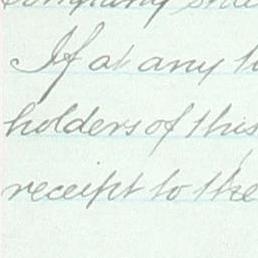 company
If at any
holders of this
receipt to the